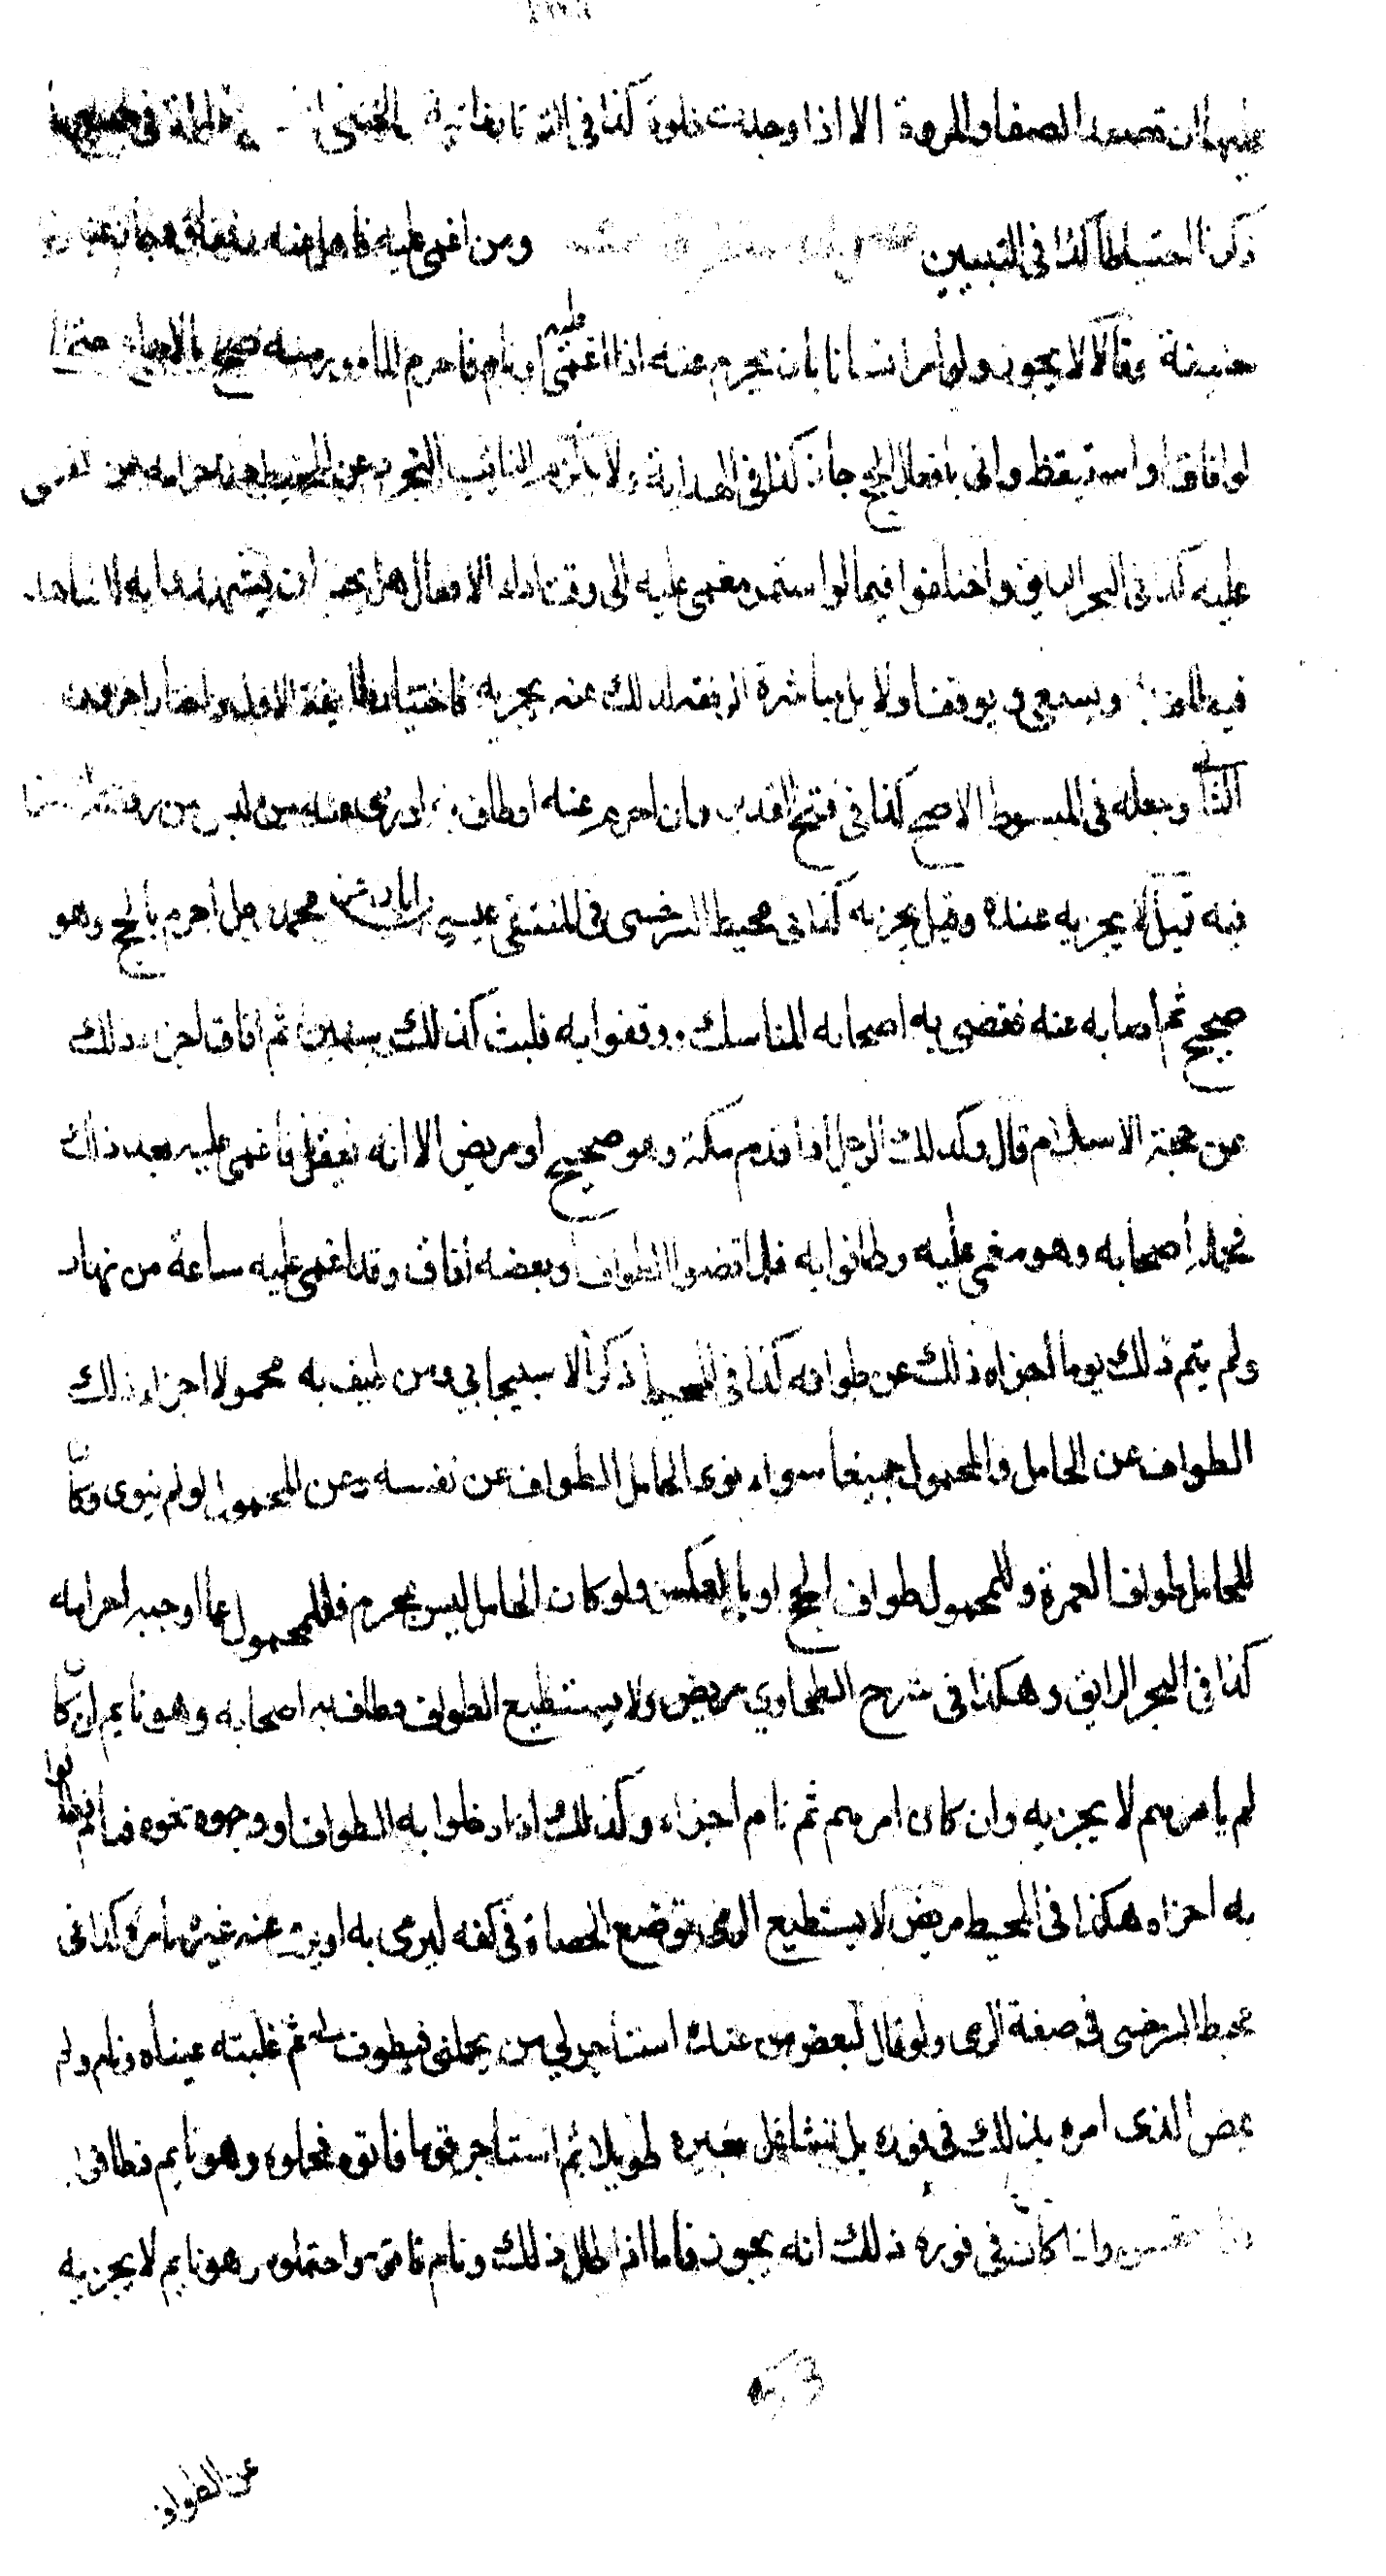 عليها ان تصعد الصفا والمروة الا اذا وجدت خلوة كذا في التاتارخانية والخنثى في جميع ما
ذكرنا احتياطا كذا في التبيين ومن اغمي عليه فاهل عنه رفقاؤه جاز عند ابي
حنيفة وقالا لا يجوز ولو امر انسانا بان يحرم عنه اذا اغمي عليه او نام فاحرم المامور عنه صح بالاجماع حتى
لو افاق او استيقظ واتى بافعال الحج جاز كذا في الهداية ولا يلزم النائب التجرد عن المخيط لاجل احرامه عن المغمى
عليه كذا في البحر الرايق واختلفوا فيما لو استمر مغمى عليه الى وقت اداء الافعال هل يجب ان يشهدوا به المشاهد
فيطاف به ويسعى ويوقف او لا بل مباشرة الرفقة لذلك عنه يجزيه فاختيار طايفة الاول واختار اخرون
الثاني وجعله في المبسوط الاصح كذا في فتح القدير وان احرم عنه او طاف به او رمى عنه من ليس من رفقته
فيه قيل لا يجزيه عنده وقيل يجزيه كذا في محيط السرخسي في المنتقى عيسى بن ابان عن محمد رجل احرم بالحج وهو
صحيح ثم اصابه عته فقضى به اصحابه المناسك ووقفوا به فلبث كذلك سنين ثم افاق اجزاه ذلك
عن حجة الاسلام قال وكذلك الرجل اذا قدم مكة وهو صحيح او مريض الا انه يعقل فاغمي عليه بعد ذلك
فحمله اصحابه وهو مغمى عليه وطافوا به فلما قضوا الطواف او بعضه افاق وقد اغمي عليه ساعة من نهار
ولم يتم ذلك يوما اجزاه ذلك عن طوافه كذا في المحيط ذكر الاسبيجابي ومن طيف به محمولا اجزاه ذلك
الطواف عن الحامل والمحمول جميعا سواء نوى الحامل الطواف عن نفسه وعن المحمول او لم ينوي وكان
للحامل طواف العمرة وللمحمول طواف الحج او بالعكس ولو كان الحامل ليس بمحرم فللمحمول عما اوجبه احرامه
كذا في البحر الرايق وهكذا في شرح الطحاوي مريض ولا يستطيع الطواف فطاف به اصحابه وهو نايم ان كان
لم يامرهم لا يجزيه وان كان امرهم ثم نام اجزاه وكذلك اذا دخلوا به الطواف او وجهوه نحوه فنام فطافوا
به اجزاه هكذا في المحيط مريض لا يستطيع الرمي توضع الحصاة في كفه ليرمى به او يرمي عنه غيره بامره كذا في
محيط السرخسي في صفة الرمي ولو قال لبعض من عنده استأجر لي من يحملني فيطوف بي ثم غلبته عيناه ونام ولم
يمض الذى امره بذلك في فوره بل تشاغل بغيره طويلا ثم استاجر قوما فاتوه فحملوه وهو نايم فطافوا
وان كانت في فوره ذلك انه يجوز فاما اذا طال ذلك ونام فاتوه واحتملوه وهو نايم لا يجزيه
عن الطواف